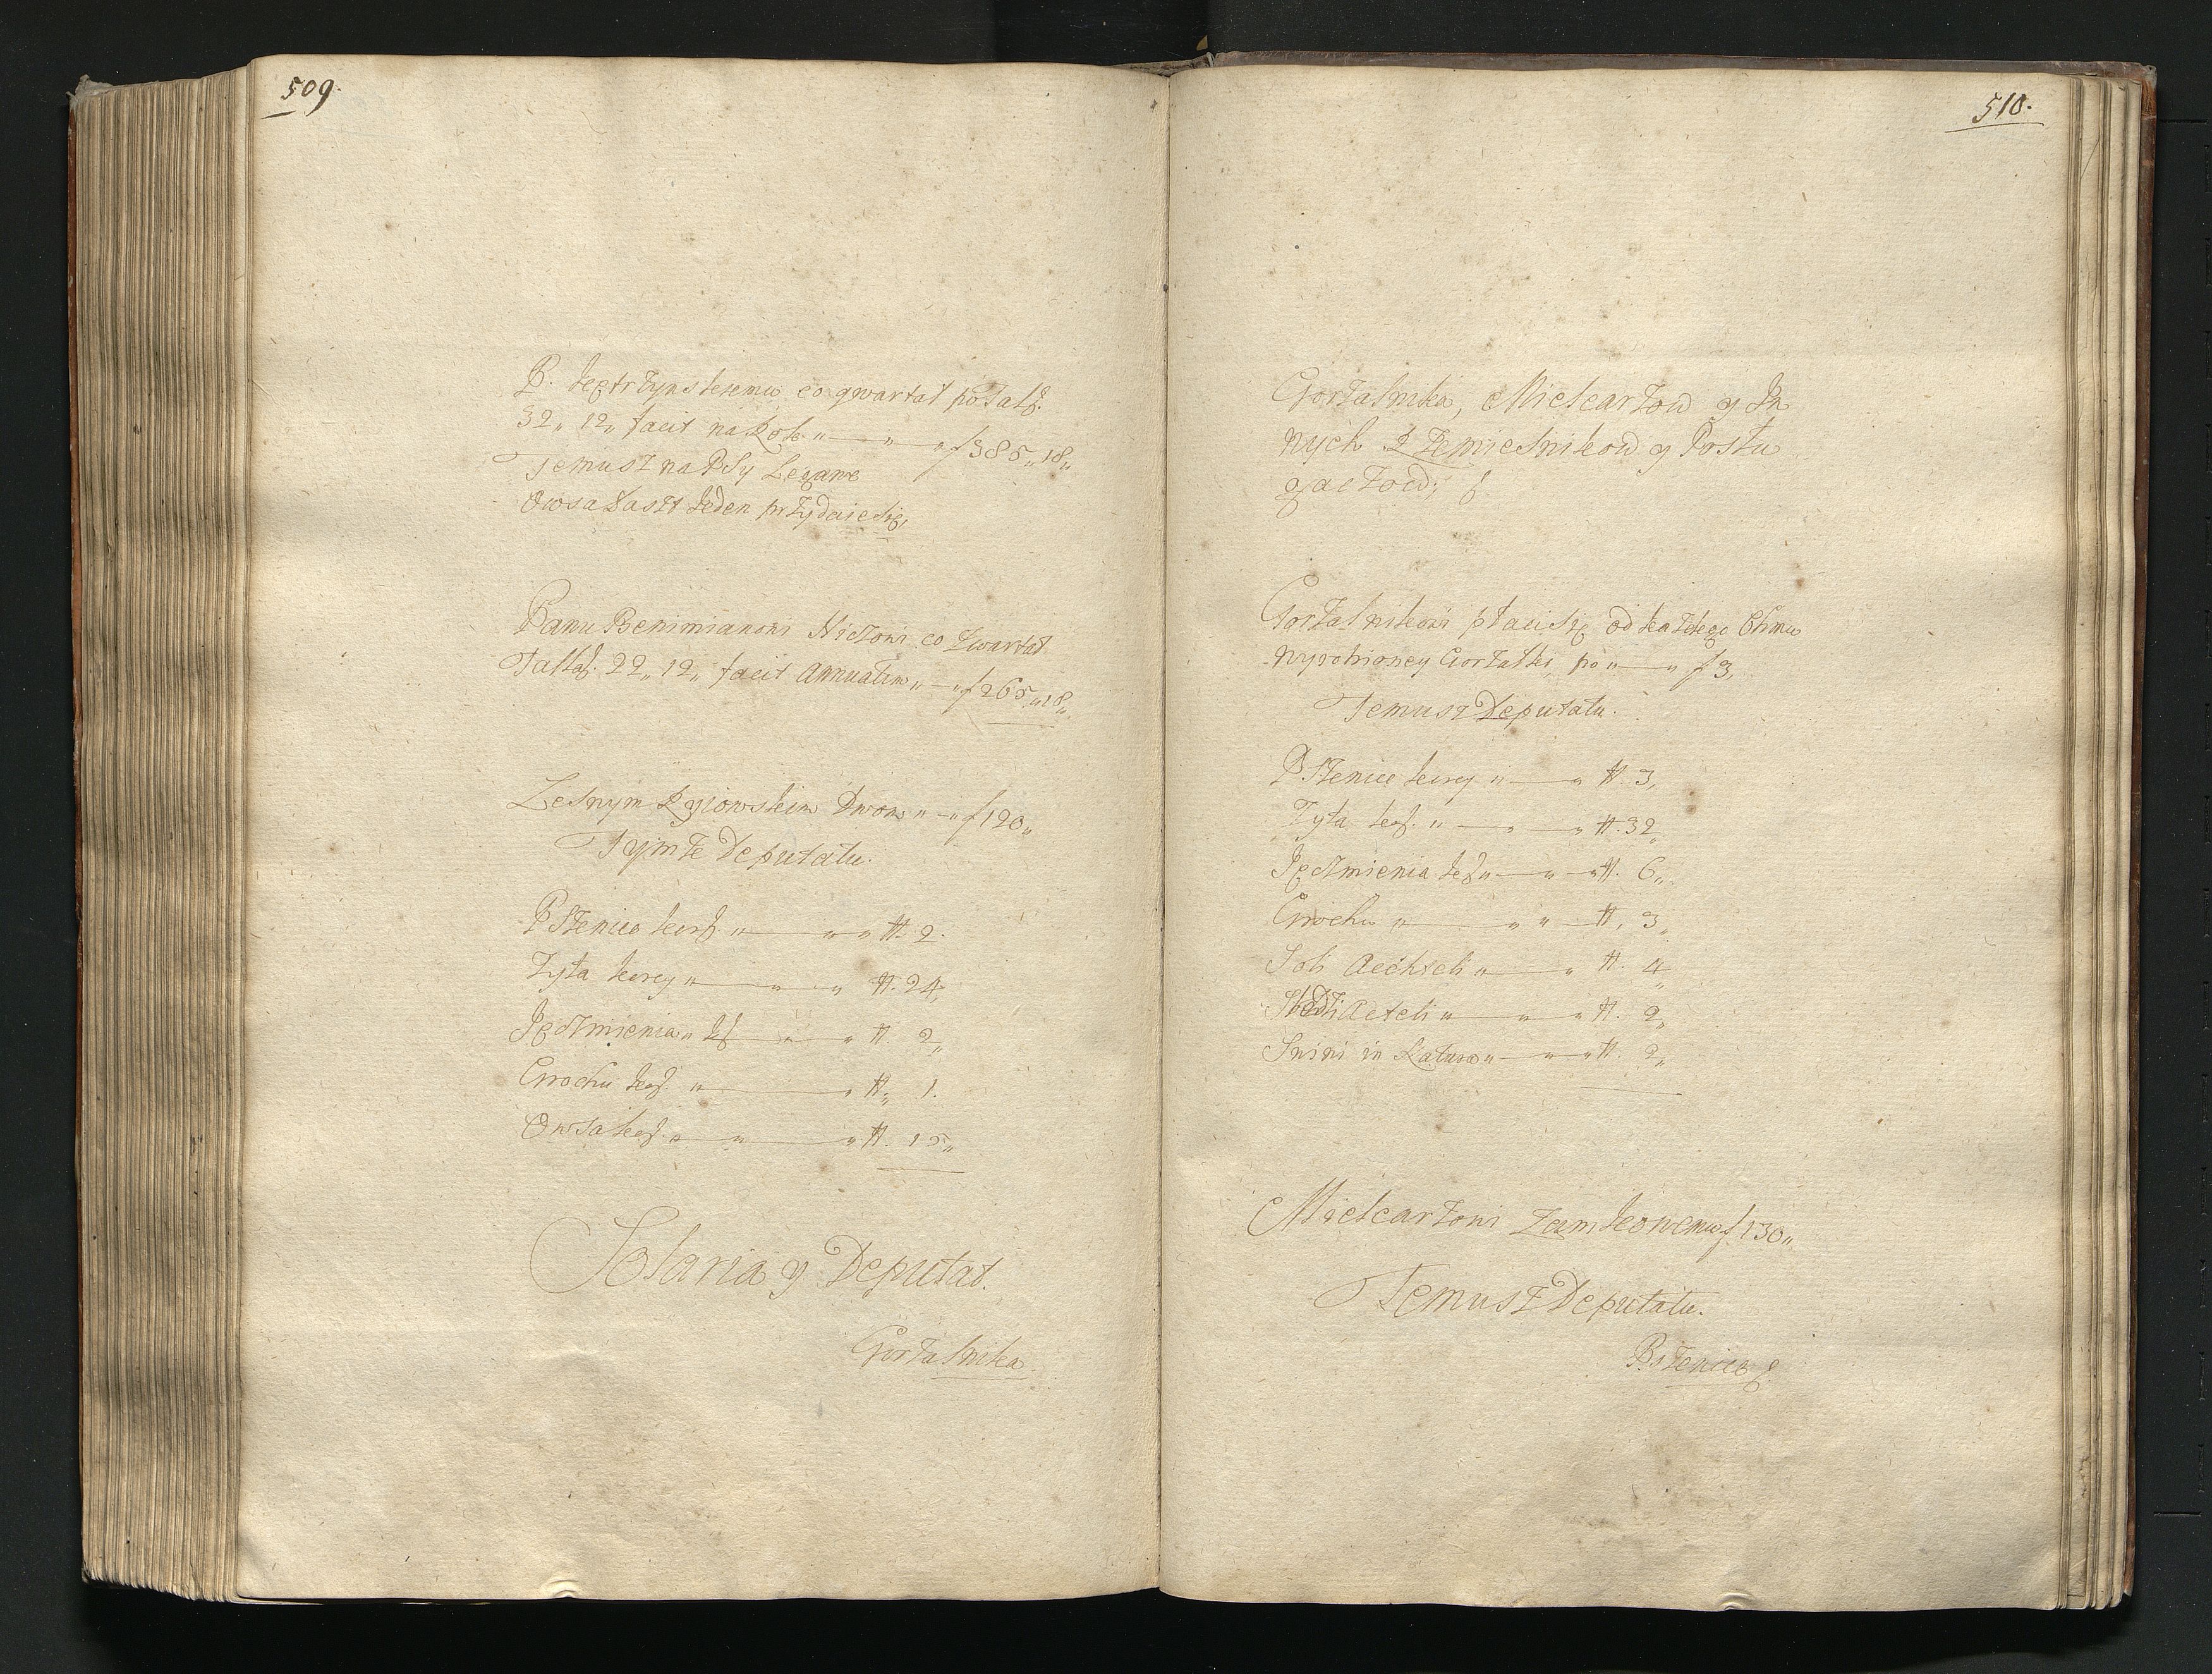 509.
P. Kętrzynskiemu co qwartał po talf.
32„ 12„ facit na Rok „ — „ „ f 385„ 18„
Temusz na Psy Legawe
Owsa Łaszt Jeden przydaie się,
Panu Benimianowi Niczowi co kwartał
Tallf. 22„ 12„ facit Annuatim „ — „ f 265„ 18„
Lesnym Kyiowskim Dwom „ — „ f 120„
Tymże Deputatu.
Pszenice korf. „ — „ „ #. 2.
Zyta korcy „ — „ — „ #. 24,
Jęczmienia „ kf — „ — „ #. 2„
Grochu korf. „ — „ #„ 1.
Owsa korf. „ — „ — „ #. 15„
Solaria y Deputat.
Gorzalnika
510.
Gorzalnika, Mielcarzow y In
nych Rzemiesnikow y Postu
gaczow;
Gorzalnikowi płaci się od każdego Ohmu
wyrobioney Gorzałki, po „ — „ f 3,
Temusz Deputatu.
Pszenice korcy „ — „ #. 3,
Zyta korf. „ — „ — „ #. 32„
Jęczmienia kf „ — „ — „ #. 6„
Grochu „ — „ „ — #. 3„
Soli Aechteli „ — „ #. 4„
Sledzi Acteli „ — „ — „ #. 2„
Swini in Natura „ — „ — „ #. 2„
Mielcarzowi zamkowemu f 130„
Temusz Deputatu.
Pszenice